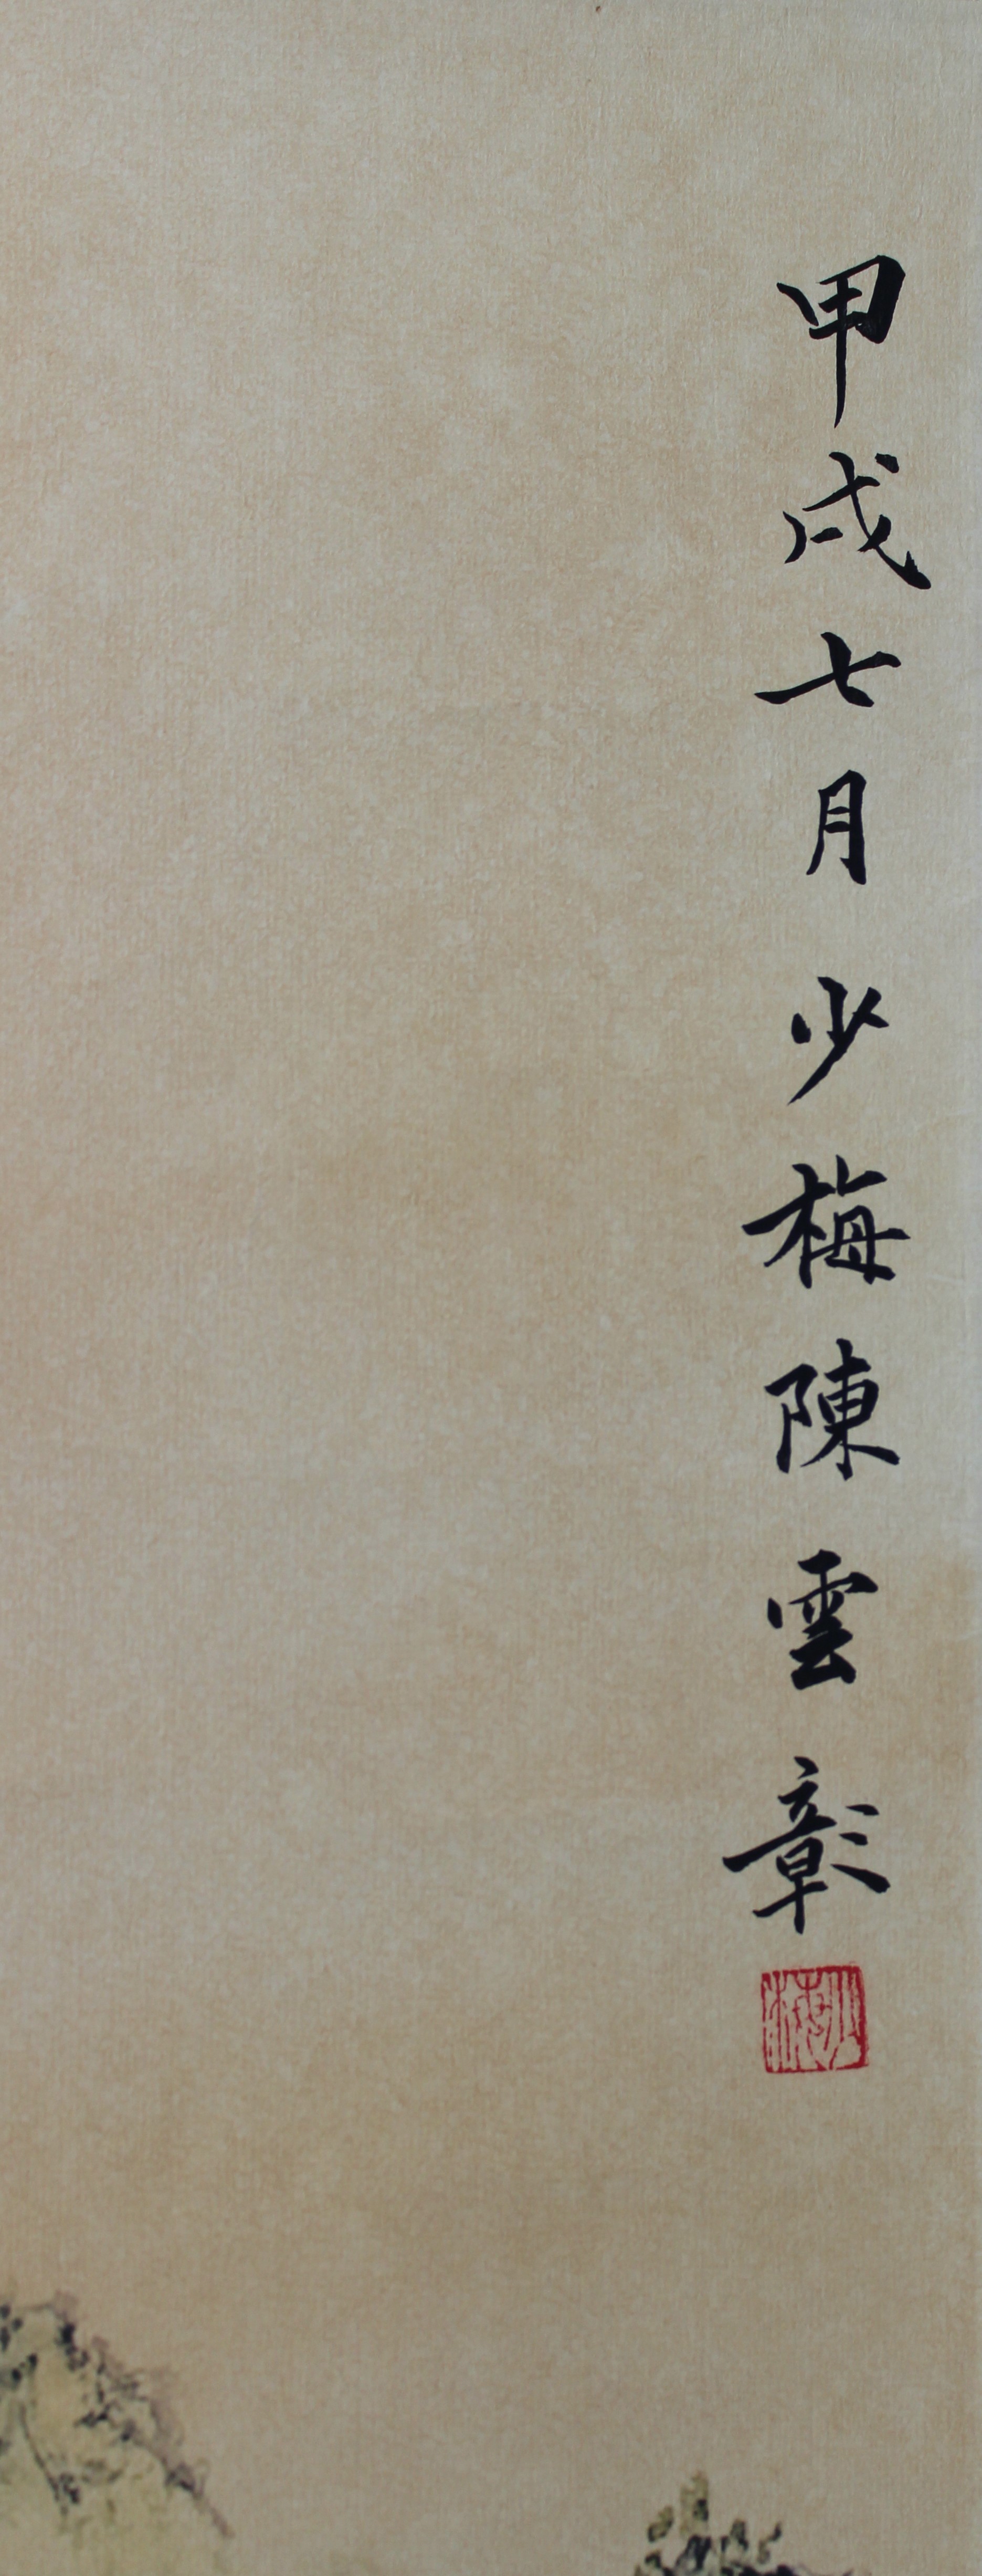 甲戌七月少梅陳雲彰
少梅